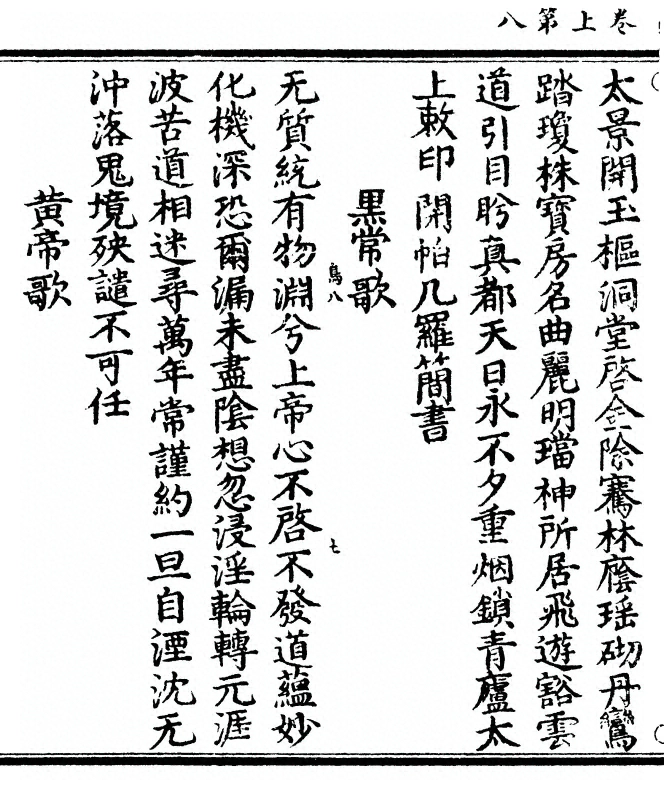 卷上第八
太景開玉樞洞堂啓金除騫林蔭瑶砌丹鸞
踏瓊株寶房名曲麗明璫神所居飛遊豁雲
道引目盻真都天日永不夕重烟鎖青廬太
上敕印開帕几羅簡書
黒帝歌
鳥八
无質統有物淵兮上帝心不啓不發道蘊妙
七
化機深恐爾漏未盡陰想忽浸淫輪轉元涯
波苦道相迷尋萬年常謹約一旦自湮沈无
沖落鬼境殃譴不可任
黄帝歌